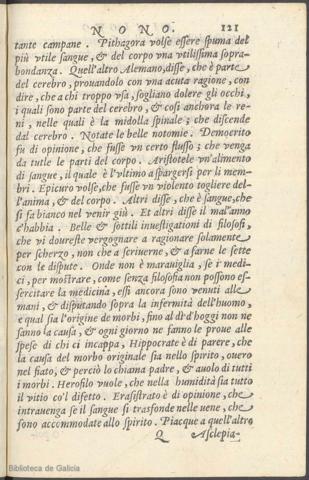 NONO. 121
tante campane. Pithagora volse essere spuma del
più vtile sangue, & del corpo vna vtilissima sopra-
bondanza. Quell'altro Alemano, disse, che è parte
del cerebro, prouandolo con vna acuta ragione, con
dire, che a chi troppo vsa, sogliano dolere gli occhi,
i quali sono parte del cerebro, & così anchora le re-
ni, nelle quali è la midolla spinale; che discende
dal cerebro. Notate le belle notomie. Democrito
fu di opinione, che fusse vn certo flusso; che venga
da tutte le parti del corpo. Aristotele vn'alimento
di sangue, il quale è l'vltimo a spargersi per li mem-
bri. Epicuro volse, che fusse vn violento togliere del-
l'anima, & del corpo. Altri disse, che è sangue, che
si fa bianco nel venir giù. Et altri disse il mal'anno
c'habbia. Belle & sottili inuestigationi di filosofi,
che vi doureste vergognare a ragionare solamente
per scherzo, non che a scriuerne, & a farne le sette
con le dispute. Onde non è marauiglia, se i medi-
ci, per mostrare, come senza filosofia non possono es-
sercitare la medicina, essi ancora sono venuti alle
mani, & disputando sopra la infermità dell'huomo,
e qual sia l'origine de morbi, fino al dì d'hoggi non ne
sanno la causa, & ogni giorno ne fanno le proue alle
spese di chi ci incappa, Hippocrate è di parere, che
la causa del morbo originale sia nello spirito, ouero
nel fiato, & perciò lo chiama padre, & auolo di tutti
i morbi. Herofilo vuole, che nella humidità sia tutto
il vitio co'l difetto. Erasistrato è di opinione, che
intrauenga se il sangue si trasfonde nelle vene, che
sono accommodate allo spirito. Piacque a quell'altro
Q Asclepia-
Biblioteca de Galicia